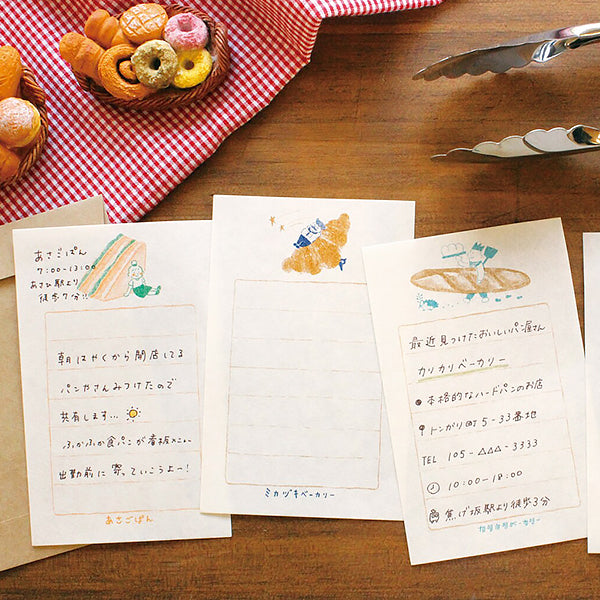 あさごぱん
7:00-13:00
あさひ駅より
徒歩7分!!
朝はやくから開店してる
パンやさんみつけたので
共有します…
ふかふか食パンが看板メニュー
出勤前に寄っていこうよー!
あさごぱん
ミカヅキベーカリー
最近見つけたおいしいパン屋さん
カリカリベーカリー
本格的なハードパンのお店
トンガリ町5-33番地
TEL 105-△△△-3333
10:00-18:00
焦げ坂駅より徒歩3分
カリカリベーカリー